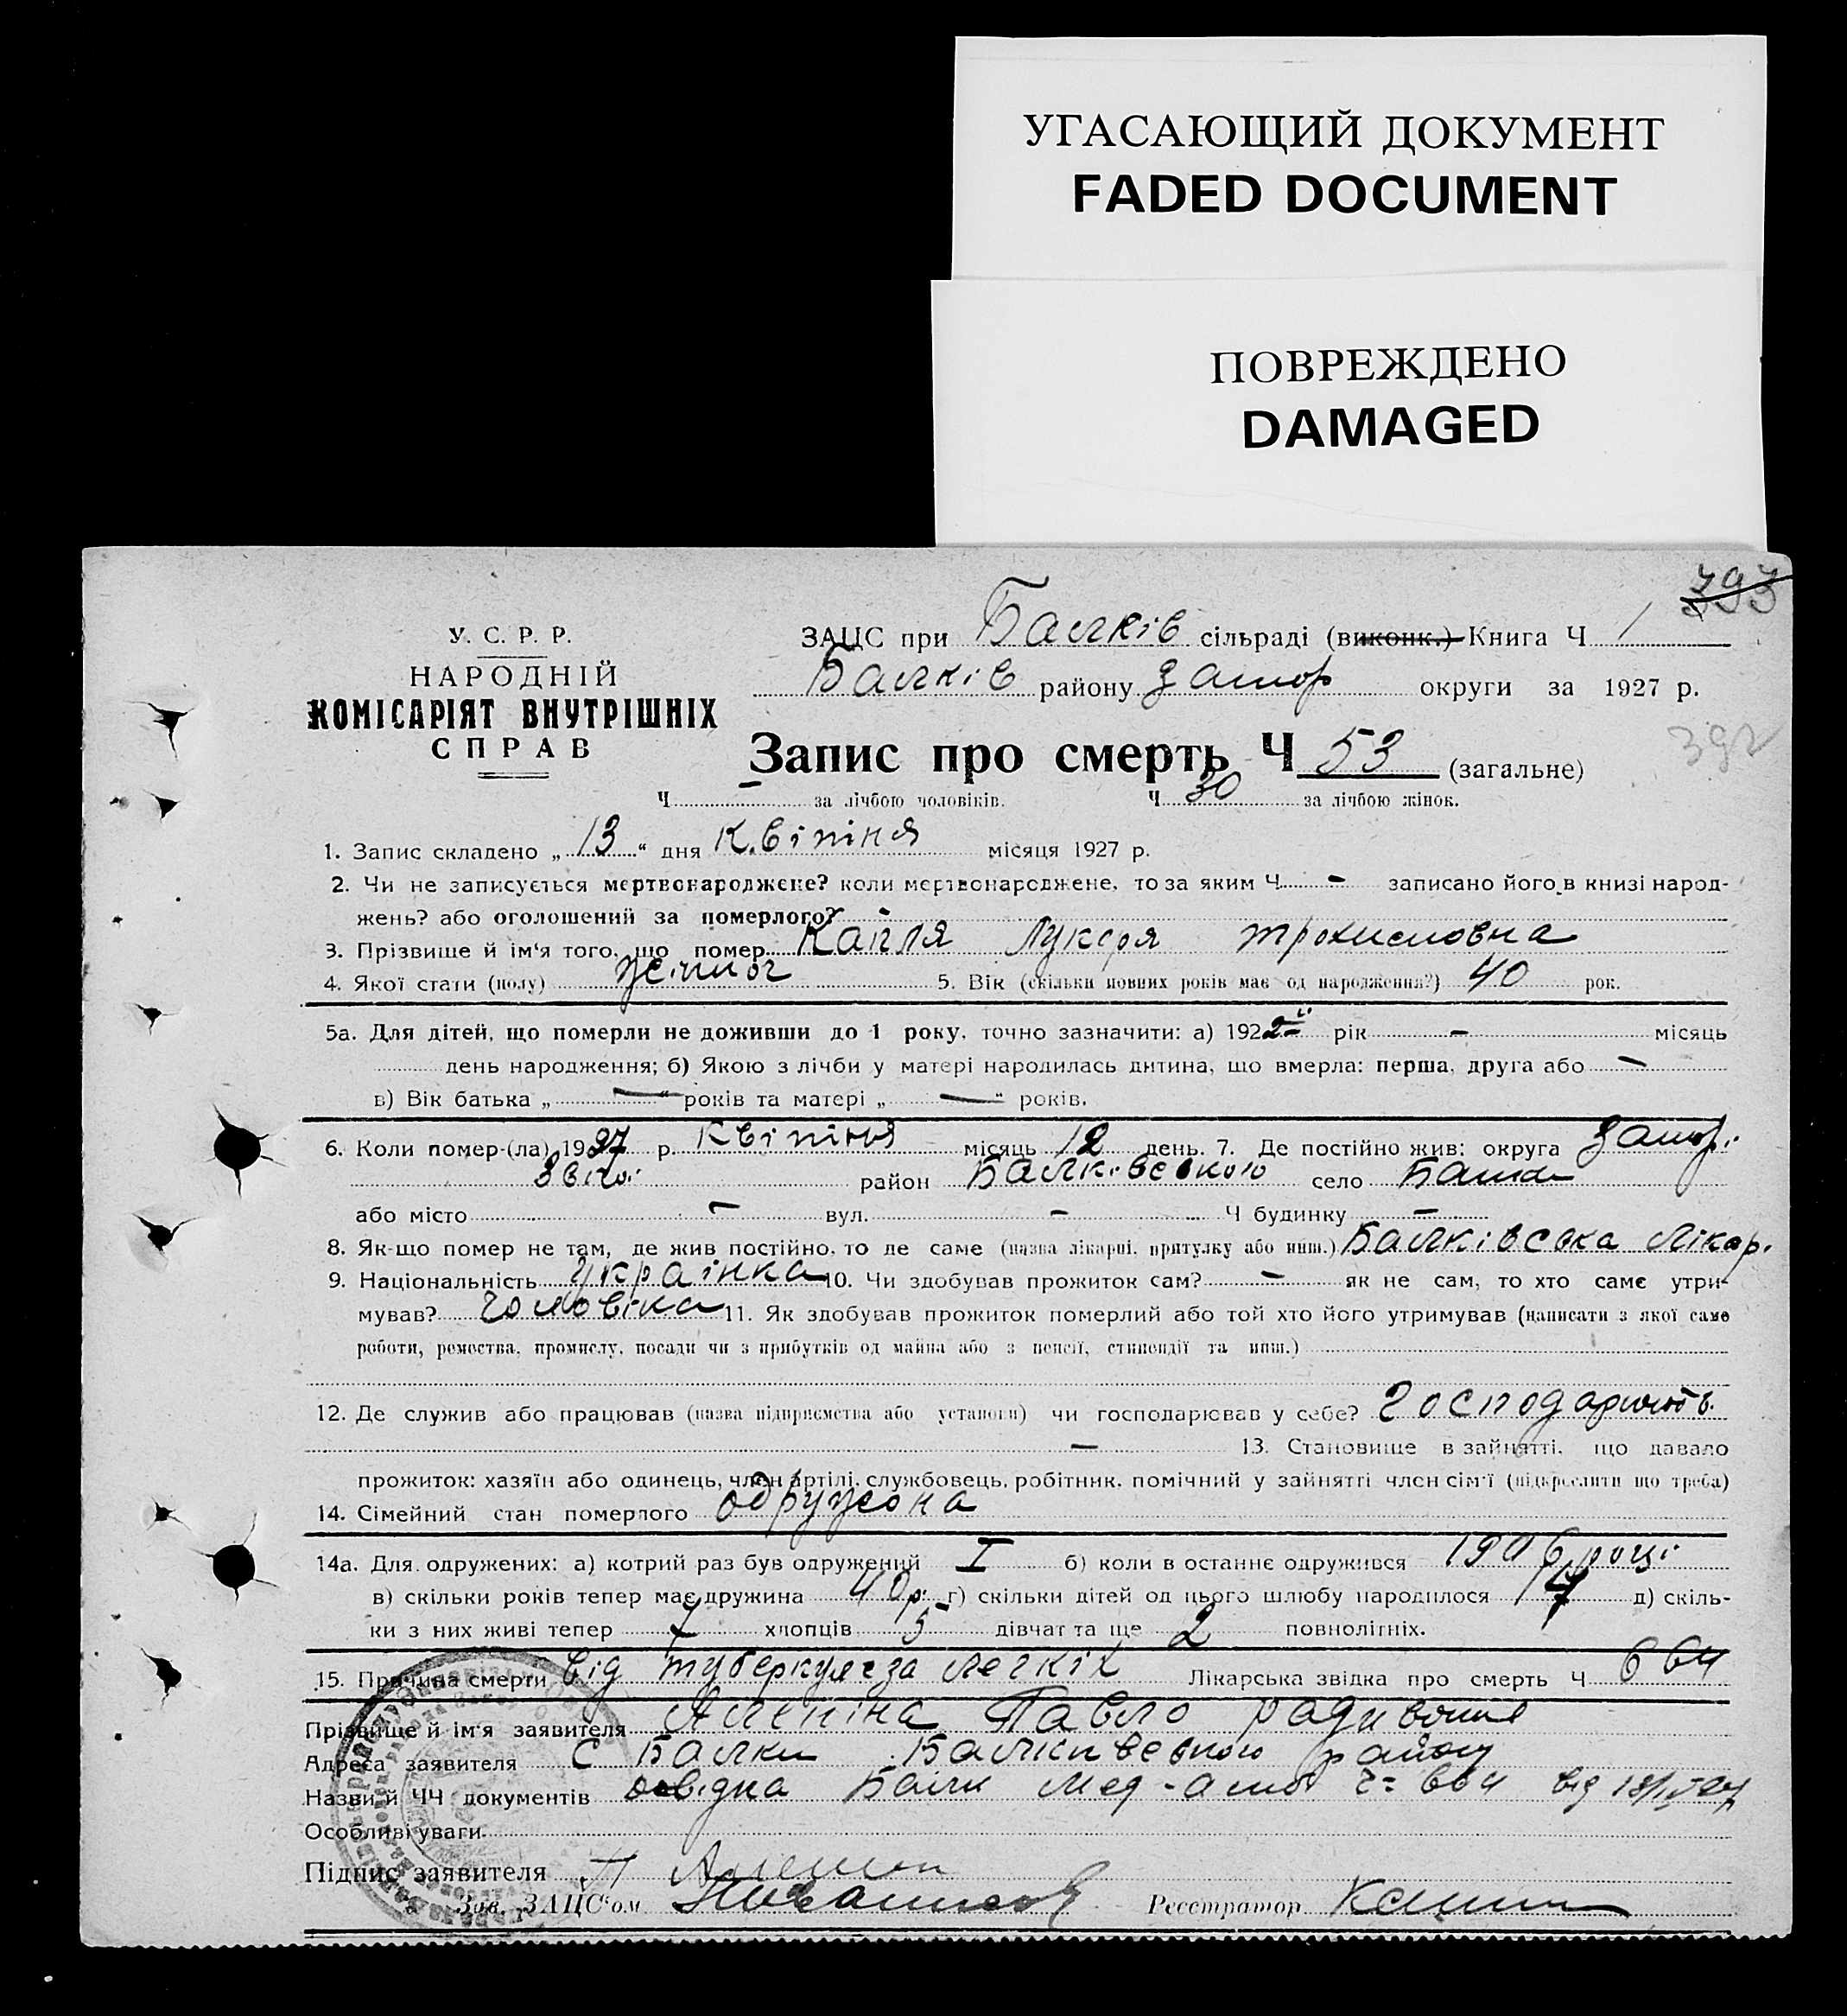 УГАСАЮЩИЙ ДОКУМЕНТ
FADED DOCUMENT
ПОВРЕЖДЕНО
DAMAGED
393
У. С. Р. Р.
НАРОДНІЙ
КОМІСАРІЯТ ВНУТРІШНІХ
СПРАВ
ЗАЦС при Балків сільраді (виконк.) Книга Ч 1
Балків району Запор округи за 1927 р.
392
Запис про смерть Ч 53 (загальне)
Ч - за лічбою чоловіків. Ч 30 за лічбою жінок.
1. Запис складено „ 13 “ дня Квітня місяця 1927 р.
2. Чи не записується мертвонароджене? коли мертвонароджене, то за яким Ч - записано його в книзі народ-
жень? або оголошений за померлого? -
3. Прізвище й ім'я того, що помер Капля Лукеря Трохимовна
4. Якої стати (полу) жіноч 5. Вік (скільки повних років має од народження?) 40 рок.
5а. Для дітей, що померли не доживши до 1 року, точно зазначити: а) 192 рік - місяць
день народження; б) Якою з лічби у матері народилась дитина, що вмерла: перша, друга або -
в) Вік батька „ — “ років та матері „ — “ років.
6. Коли помер-(ла) 1927 р. Квітня місяць 12 день. 7. Де постійно жив: округа Запор.
район Балківського село Балки
або місто - вул. - Ч будинку -
8. Як-що помер не там, де жив постійно, то де саме (назва лікарні, притулку або инш.) Балківська лікар.
9. Національність Українка 10. Чи здобував прожиток сам? - як не сам, то хто саме утри-
мував? Чоловіка 11. Як здобував прожиток померлий або той хто його утримував (написати з якої саме
роботи, ремества, промислу, посади чи з прибутків од майна або з пенсії, стипендії та инш.)
12. Де служив або працював (назва підприємства або установи) чи господарював у себе? Господарюють.
- 13. Становище в зайнятті, що давало
прожиток: хазяїн або одинець, член артілі, службовець, робітник, помічний у зайнятті член сім'ї (підкреслити що треба)
14. Сімейний стан померлого одружона
14а. Для одружених: а) котрий раз був одружений I б) коли в останнє одружився 1906 році
в) скільки років тепер має дружина 40 р. г) скільки дітей од цього шлюбу народилося д) скіль-
ки з них живі тепер 7 хлопців 5 дівчат та ще 2 повнолітніх.
15. Причина смерти Від туберкульоза легких Лікарська звідка про смерть Ч 664
Прізвище й ім'я заявителя Павло
Адреса заявителя С Балки Балківського району
Назви й ЧЧ документів Балк Мед- 664 від
Особливі уваги
Підпис заявителя
Зав. ЗАЦС'ом Реєстратор